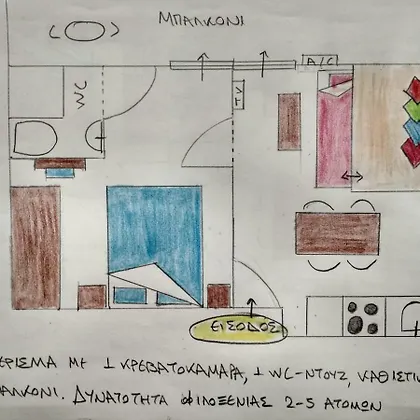 ΜΠΑΛΚΟΝΙ
A/C
WC
TV
ΕΙΣΟΔΟΣ
ΕΡΙΣΜΑ ΜΕ 1 ΚΡΕΒΑΤΟΚΑΜΑΡΑ, 1 WC-ΝΤΟΥΣ, ΚΑΘΙΣΤΙ
ΑΛΚΟΝΙ. ΔΥΝΑΤΟΤΗΤΑ ΦΙΛΟΞΕΝΙΑΣ 2-5 ΑΤΟΜΩΝ